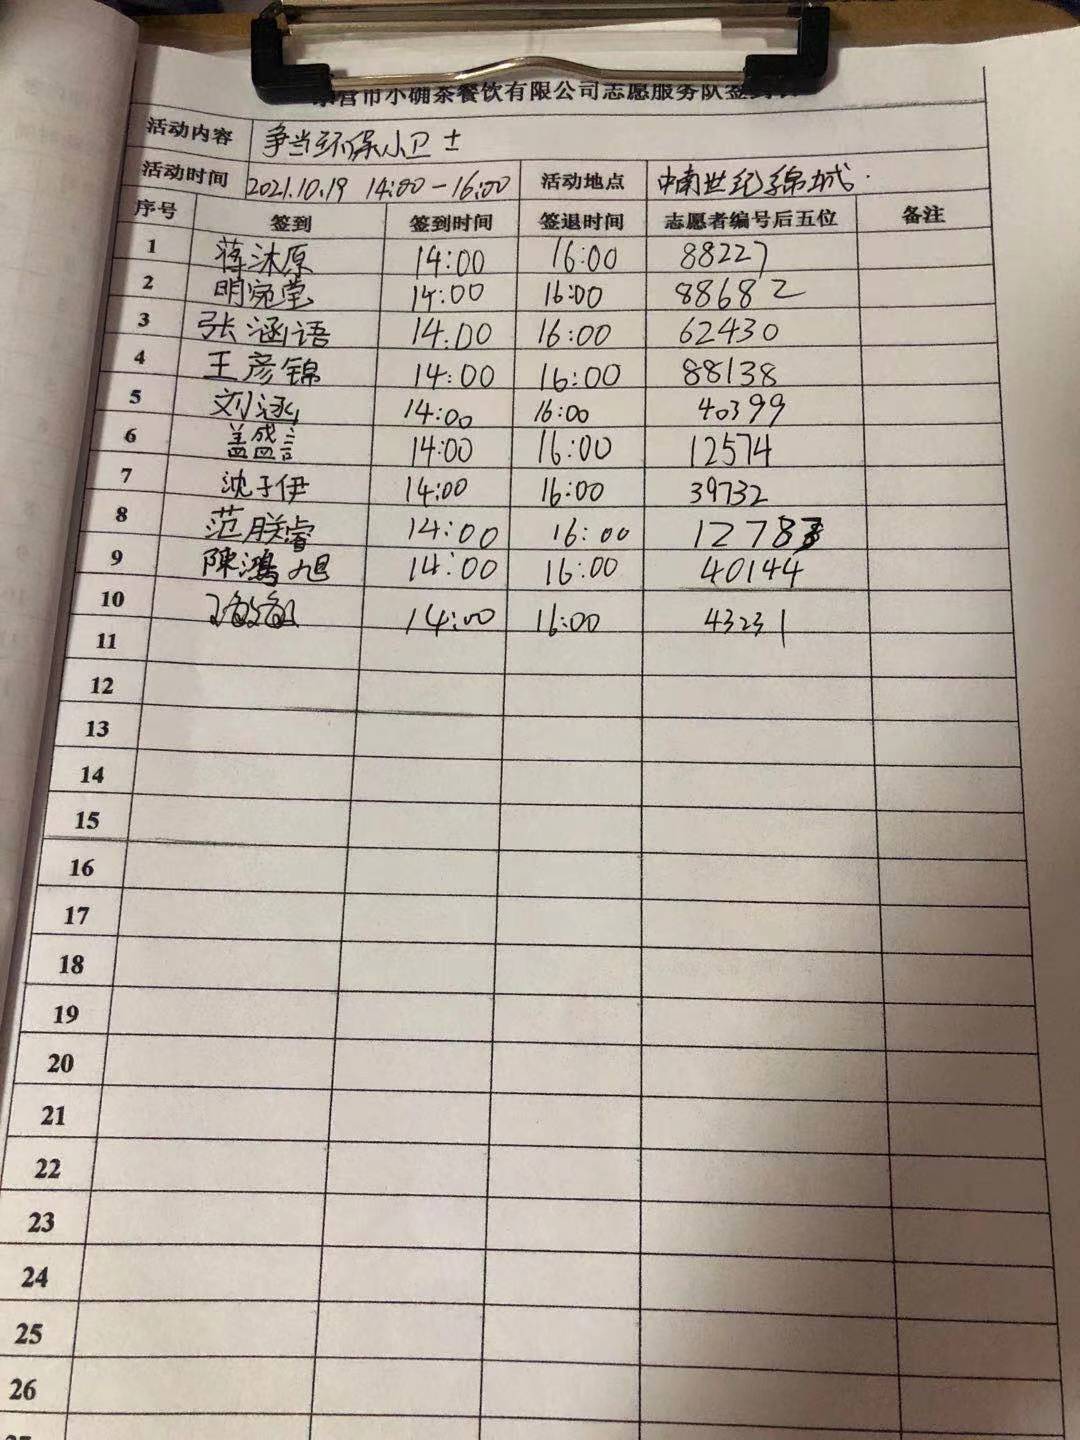 营市小确茶餐饮有限公司志愿服务队签到
活动内容 争当环保小卫士
活动时间 2021.10.19 14:00-16:00 活动地点 中南世纪锦城.
序号 签到 签到时间 签退时间 志愿者编号后五位 备注
1 蒋沐原 14:00 16:00 88227
2 明宛莹 14:00 16:00 88682
3 张涵语 14:00 16:00 62430
4 王彦锦 14:00 16:00 88138
5 刘涵 14:00 16:00 40399
6 盖盛言 14:00 16:00 12574
7 沈于伊 14:00 16:00 39732
8 范朕睿 14:00 16:00
9 陳鴻旭 14:00 16:00 40144
10 14:00 16:00 43231
11
12
13
14
15
16
17
18
19
20
21
22
23
24
25
26